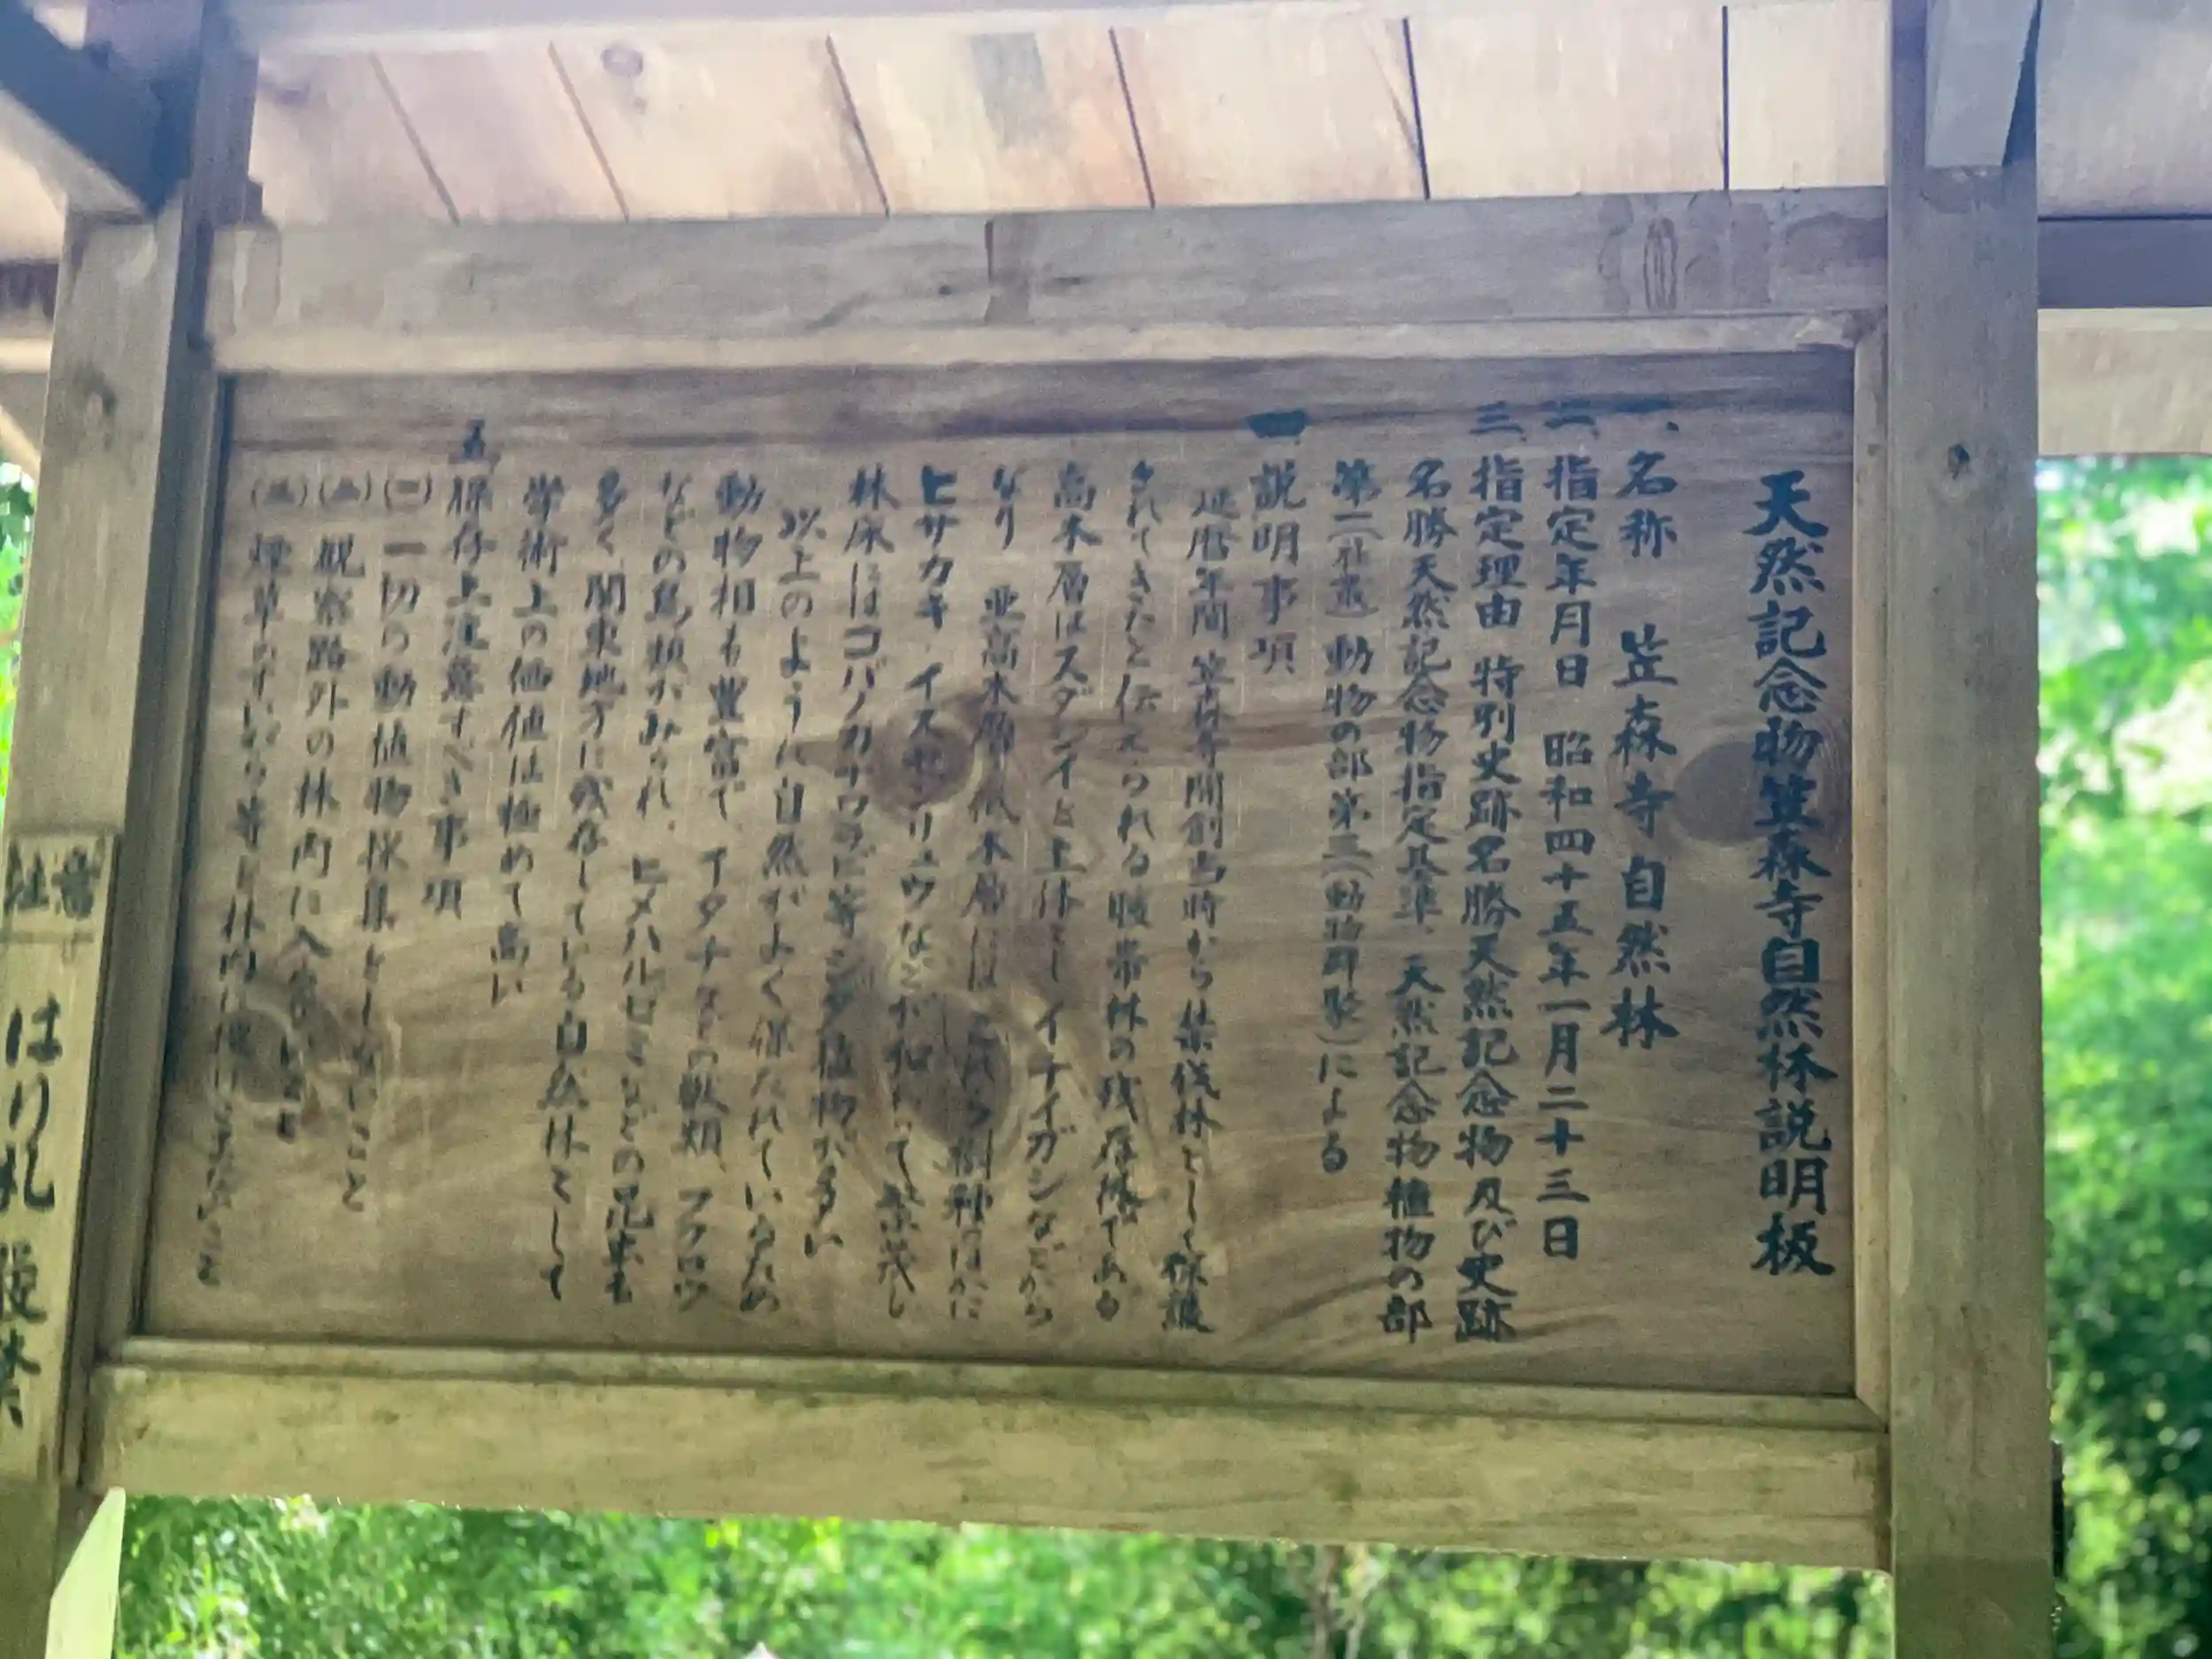 天然記念物笠森寺自然林説明板
一、名称 笠森寺自然林
二、指定年月日 昭和四十五年一月二十三日
三、指定理由 特別史跡名勝天然記念物及び史跡
名勝天然記念物指定基準、天然記念物植物の部
第二(社叢)動物の部第三(動物群聚)による
四、説明事項
延暦年間 笠森寺開創当時から禁伐林として保護
されてきたと伝えられる暖帯林の残存林である
高木層はスダジイを主体とし イチイガシなどから
なり 亜高木層 低木層には これら樹種ほかに
ヒサカキ・イスセンリュウなどが加わって繁茂し
林床にはコバノカナワラビ等シダ植物が多い
以上のように自然がよく保たれているため
動物相も豊富で、イタチなどの獣類、フクロウ
などの鳥類がみられ、ヒメハルゼミなどの昆虫も
多く、関東地方に残存している自然林として
学術上の価値は極めて高い
五、保存上注意すべき事項
(一)一切の動植物採集をしないこと
(二)観察路外の林内に入
(三)煙草のすいがら等を林内に
当社
はり札 一 禁